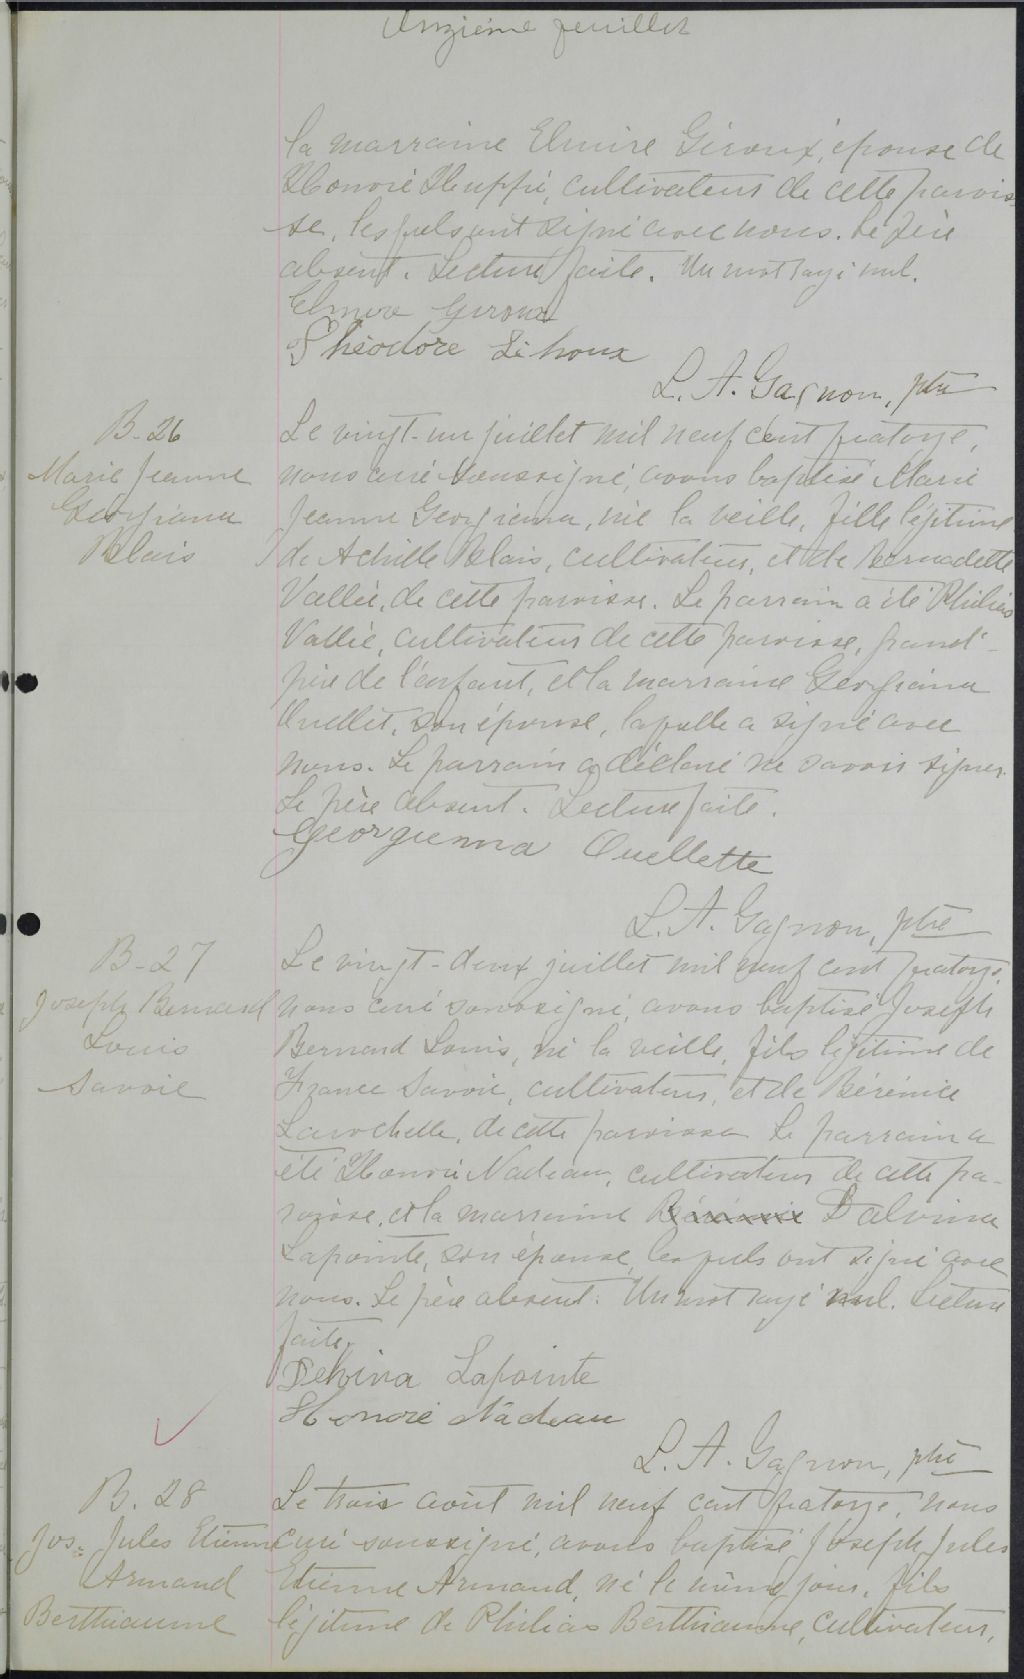 Onzième feuillet
la marraine Elmire Giroux, épouse de
Honoré Huppé, cultivateur de cette parois-
se, lesquels ont signé avec nous. Le père
absent. Lecture faite. Un mot rayé nul.
Elmire Giroux
Théodore Lihoux
L. A. Gagnon, ptre
B-26
Marie Jeanne
Georgiana
Blais
Le vingt-un juillet mil neuf cent quatorze,
nous curé soussigné, avons baptisé Marie
Jeanne Georgienna, née la veille, fille légitime
de Achille Blais, cultivateur, et de Bernadette
Vallée, de cette paroisse. Le parrain a été Philias
Vallée, cultivateur de cette paroisse, grand'-
père de l'enfant, et la marraine Georgiana
Ouellet, son épouse, laquelle a signé avec
nous. Le parrain a déclaré ne savoir signer.
Le père absent. Lecture faite.
Georgienna Ouellette
L. A. Gagnon, ptre
B-27
Joseph Bernard
Louis
Savoie
Le vingt-deux juillet mil neuf cent quatorze,
nous curé soussigné, avons baptisé Joseph
Bernard Louis, né la veille, fils légitime de
France Savoie, cultivateur, et de Bérénice
Larochelle, de cette paroisse. Le parrain a
été Honoré Nadeau, cultivateur de cette pa-
roisse, et la marraine Dalvina
Lapointe, son épouse, lesquels ont signé avec
nous. Le père absent. Un mot rayé nul. Lecture
faite.
Delvina Lapointe
Honoré Nadeau
L. A. Gagnon, ptre
B. 28
Jos. Jules Etienne
Armand
Berthiaume
Le trois août mil neuf cent quatorze, nous
curé soussigné, avons baptisé Joseph Jules
Etienne Armand, né le même jour, fils
légitime de Philias Berthiaume, cultivateur,